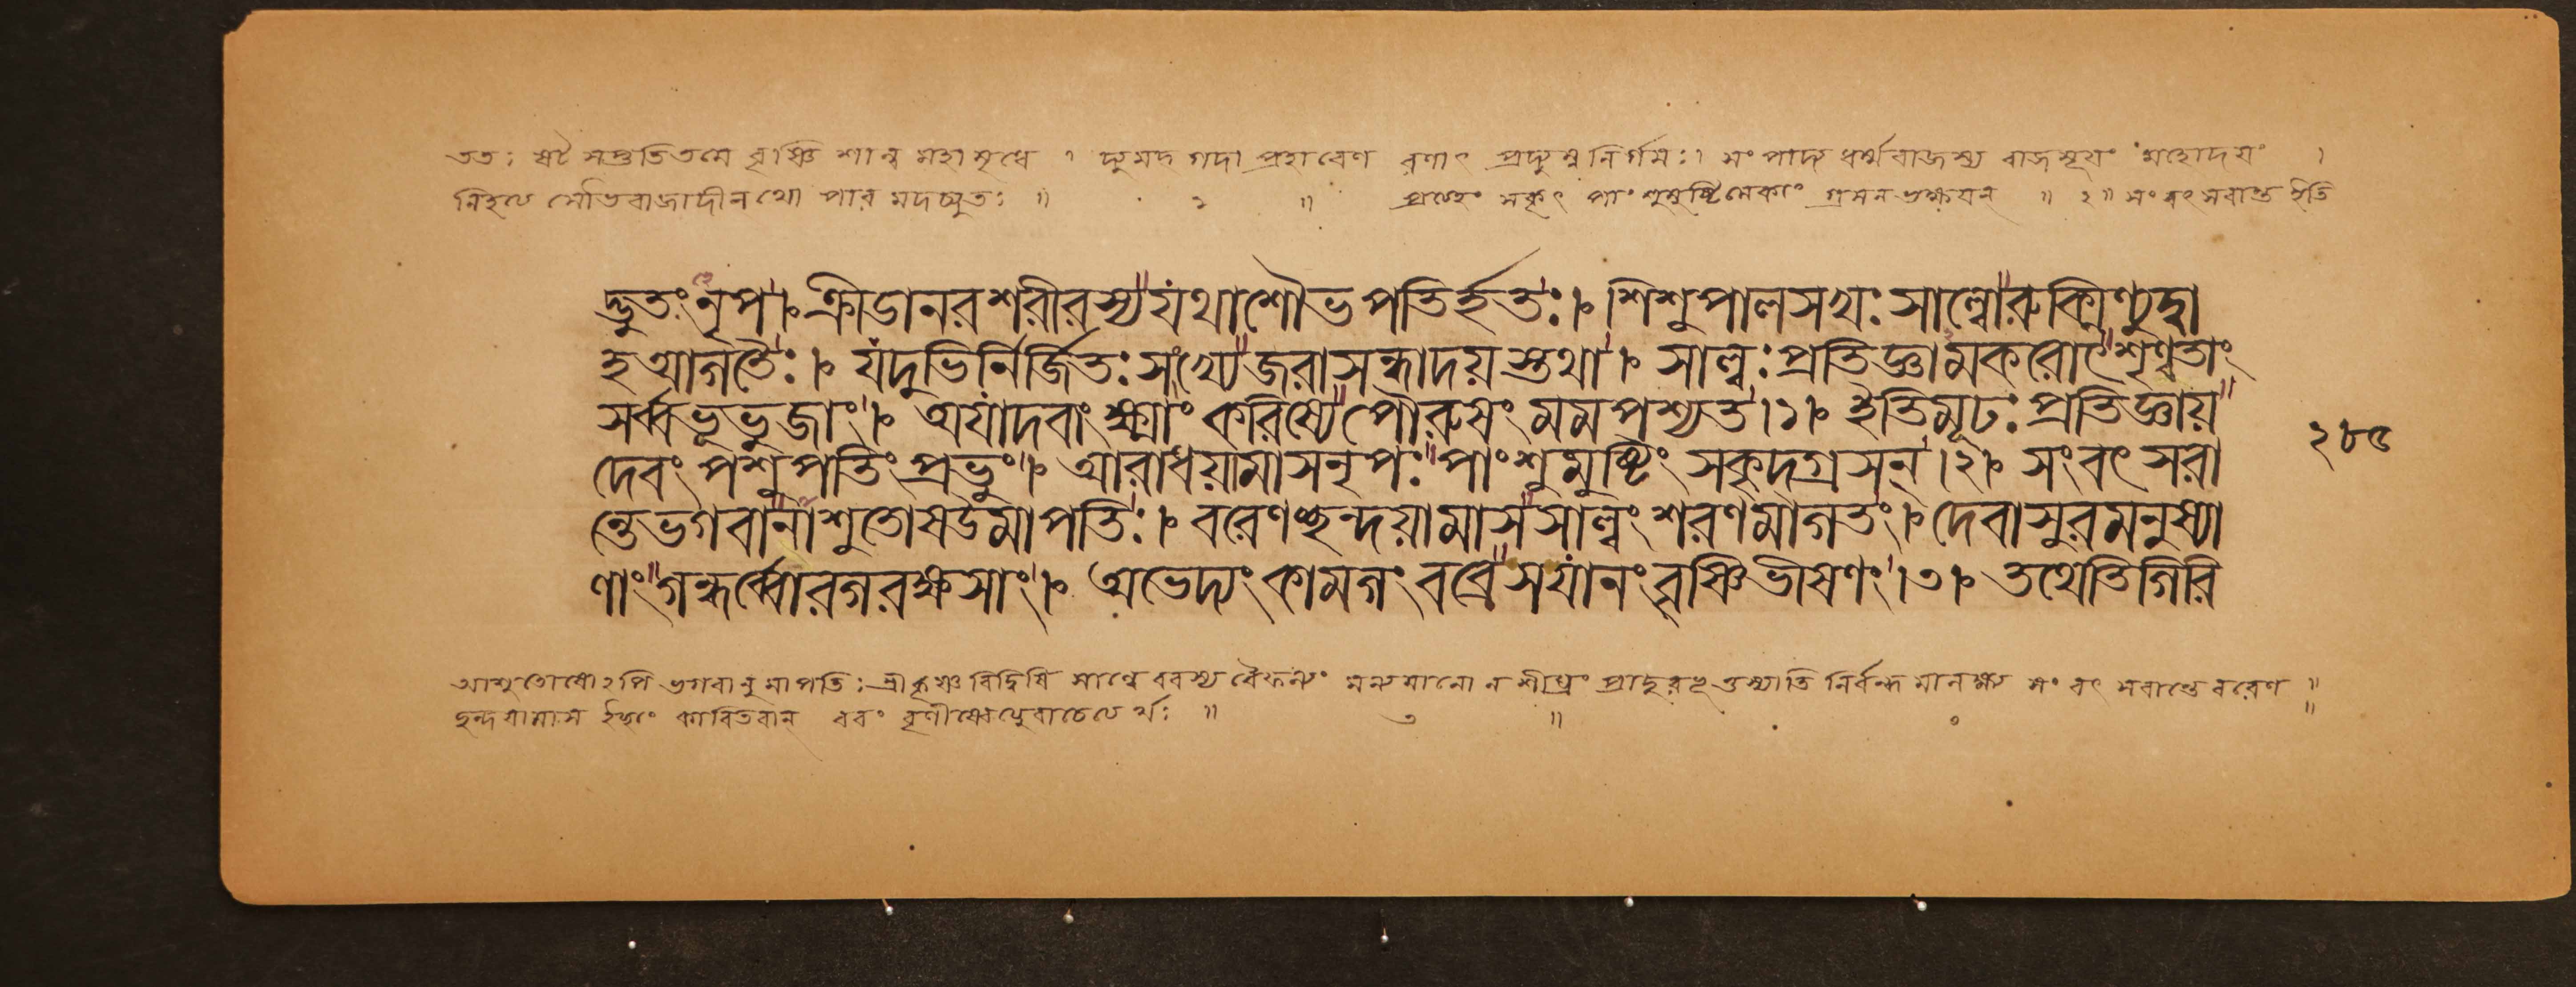 ততঃ ষট্ সপ্ততিতমে বৃষ্ণি শাল্ব মহামৃধে । দ্যুমদ্ গদা প্রহারেণ রণাৎ প্রদ্যুম্ন নির্গমঃ । সংপাদ্য ধর্ম্মরাজস্য রাজসূয়ং মহোদয়ং ।
নিহত্য সৌভরাজাদীনথো পার মদচ্যুতঃ ॥ ১ ॥ প্রত্যহং সকৃৎ পাংশুমুষ্টিমেকাং গ্রসন ভক্ষয়ন্ ॥ ২ ॥ সংবৎসরান্ত ইতি
দ্ভুতং নৃপ । ক্রীডানরশরীরস্য যথা শৌভপতির্হতঃ । শিশুপালসখঃ সাল্বো রুক্মিণ্যুদ্বা
হ আগতৈঃ । যদুভির্নির্জিতঃ সংখ্যে জরাসন্ধাদয়স্তথা । সাল্বঃ প্রতিজ্ঞামকরোৎ শৃণ্বতাং
সর্ব্বভূভুজাং । অযাদবাং ক্ষ্মাং করিষ্যে পৌরুষং মম পশ্যত ।১। ইতি মূঢঃ প্রতিজ্ঞায়
দেবং পশুপতিং প্রভুং । আরাধয়ামাস নৃপঃ পাংশুমুষ্টিং সকৃদ্গ্রসন্ ।২। সংবৎসরা
২৮৫
ন্তে ভগবানাশুতোষ উমাপতিঃ । বরেণ চ্ছন্দয়ামাস সাল্বং শরণমাগতং । দেবাসুরমনুষ্যা
ণাং গন্ধর্ব্বোরগরক্ষসাং । অভেদ্যং কামগং বব্রে স যানং বৃষ্ণিভীষণং ।৩। তথেতি গিরি
আশুতোষোঽপি ভগবানুমাপতিঃ শ্রীকৃষ্ণ বিদ্বিষি সাল্বে বরস্য বৈফল্যং মন্যমানো ন শীঘ্রং প্রাদুরভূৎ তস্যাতি নির্বন্ধ মালক্ষ্য সংবৎসরান্তে বরেণ ॥
ছন্দয়ামাস ইচ্ছাং কারিতবান্ বরং বৃণীষ্বেত্যুবাচেত্যর্থঃ ॥ ৩ ॥